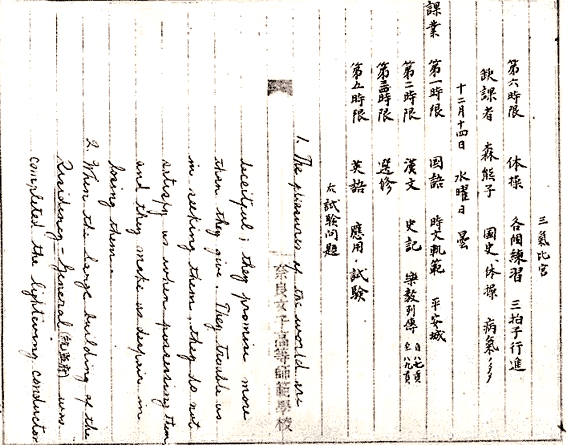 三氣比宮
第六時限 体操 各個練習 三拍子行進
欽課者 森熊子 國史、体操 病氣
十二月十四日 水曜日 曇
課業
第一時限 国語 時文軌範 平安城
第二時限 漢文 史記 樂毅列傳
第三時限 選修
第五時限 英語 應用・試験
試験問題
1. The pleasures of the world are
deceitful; they promise more
than they give. They trouble us
in seeking them, they do not
satisfy us when possessing them
and they make us despair in
losing them.
2. When the large building of the
Residency-General was
completed the lightning conductor
奈良女子高等師範學校